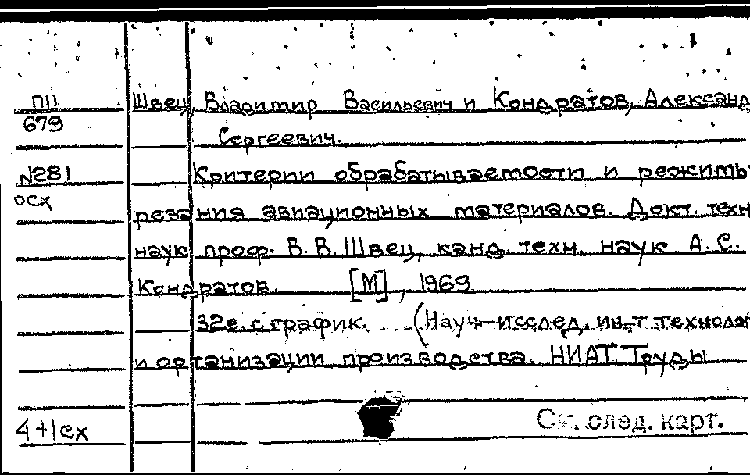 П11 Швец, Владимир Васильевич и Кондратов, Александ
679 Сергеевич.
N281 Критерии обрабатываемости и режимы
осх резания авиационных материалов. Докт. техн
наук проф. В.В.Швец, канд. техн. наук А.С.
Кондратов. [М], 1969
32с. с график. (Науч-исслед. ин-т технолог
и организации производства. НИАТ. Труды
4+1сх См. след. карт.